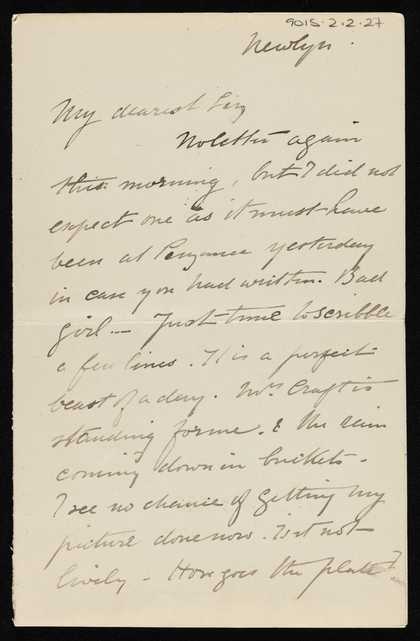 9015-2-2-27
Newlyn.
My dearest Liz
No letter again
this morning, but I did not
expect one as it must have
been at Penzance yesterday
in case you had written. Bad
girl — Just time to scribble
a few lines. It is a perfect
beast of a day. Mrs Craft is
standing for me. & the rain
coming down in buckets -
I see no chance of getting my
picture done now. Is it not
lively - How goes the plate?